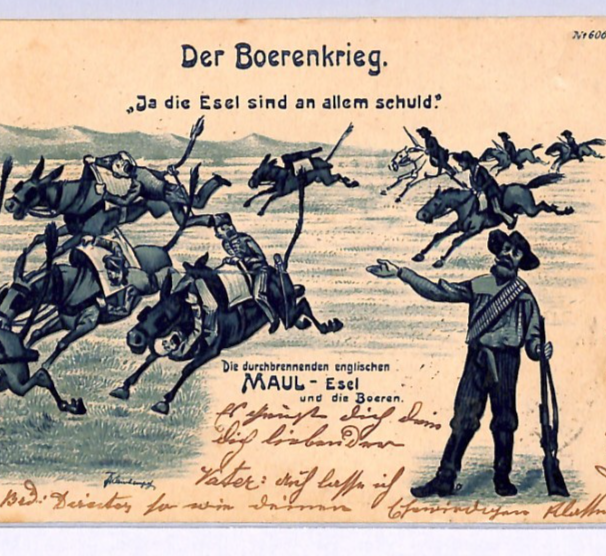 Nr 606
Der Boerenkrieg.
„Ja die Esel sind an allem schuld."
Die durchbrennenden englischen
MAUL - Esel
und die Boeren.
Es grüßt dich dein
dich liebender
Vater: auch lasse ich
Bed: Director so wie deinen